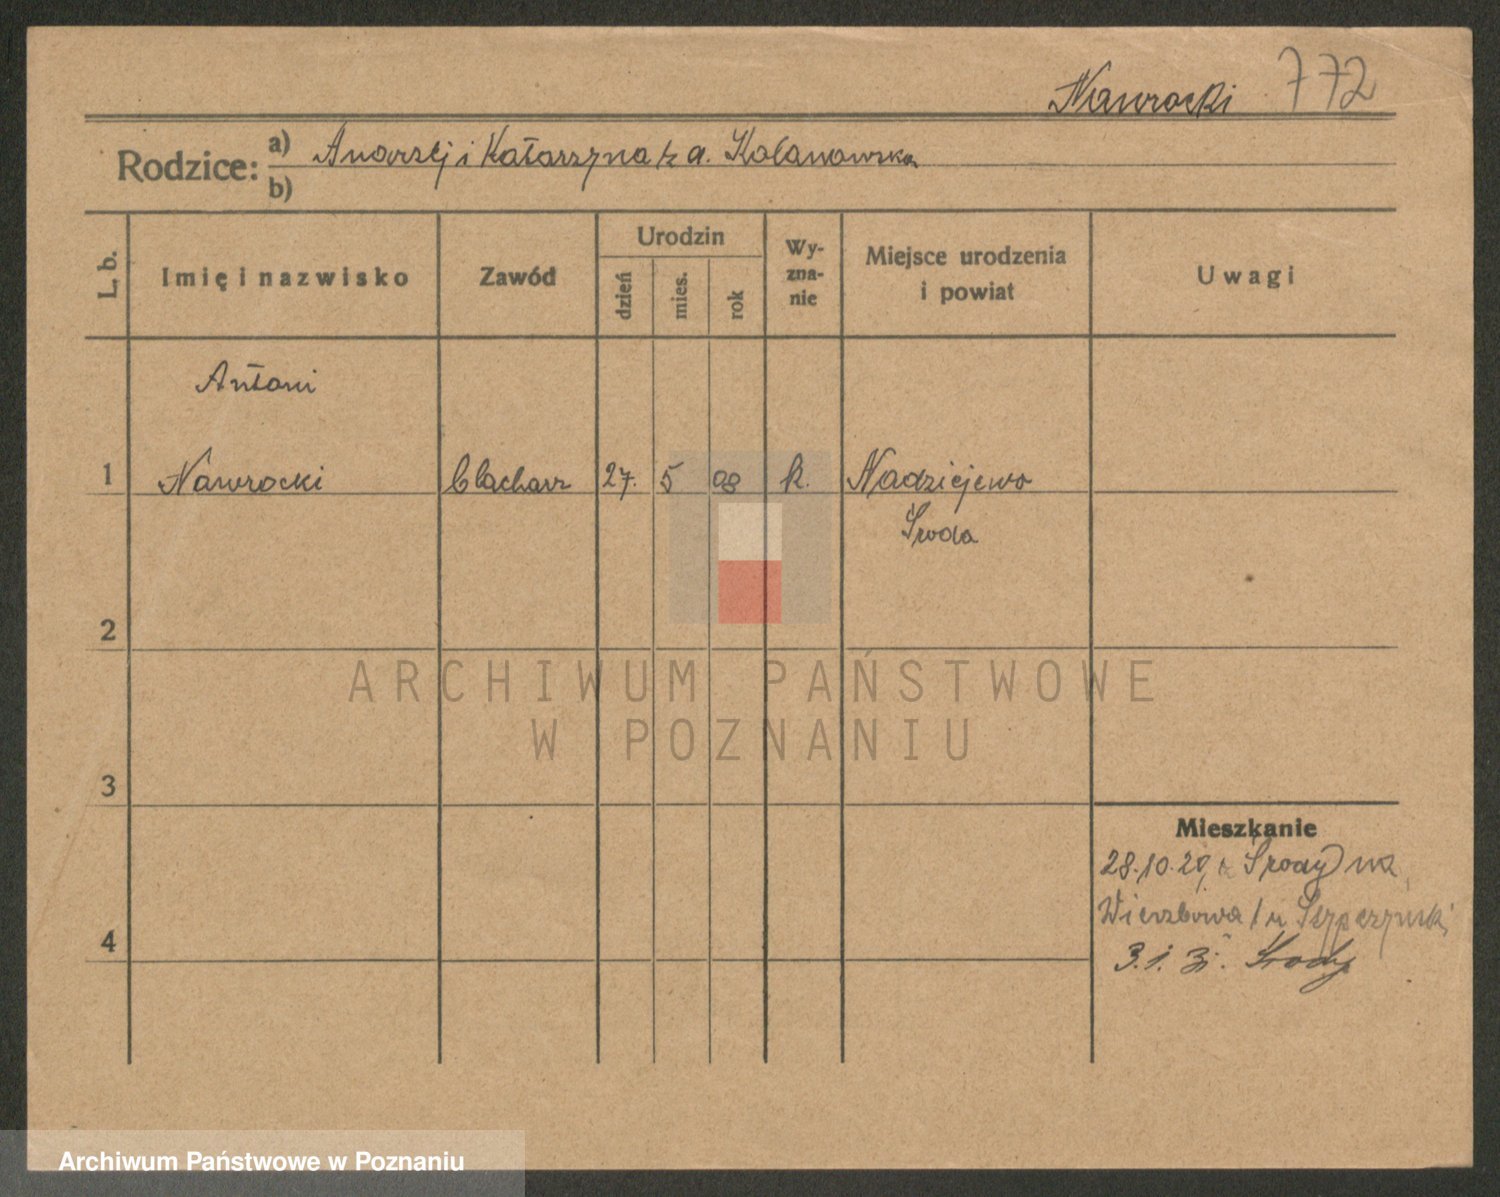 Nawrocki 772
Rodzice: a) Andrzej i Katarzyna z d. Kolanowska
b)
L. b.
Imię i nazwisko
Zawód
Urodzin
dzień
mies.
rok
Wy-
zna-
nie
Miejsce urodzenia
i powiat
Uwagi
Antoni
1 Nawrocki blacharz 27. 5 08 k. Nadziejewo
Środa
2
3
4
Mieszkanie
28.10.29, z Środy na
Wierzbowa 1 u
3.1.31. Środy
ARCHIWUM PAŃSTWOWE
W POZNANIU
Archiwum Państwowe w Poznaniu